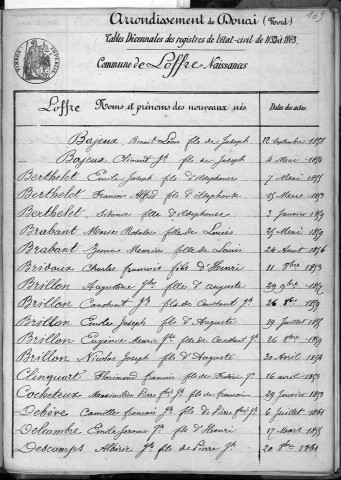 169
Arrondissement de Douai (Nord)
Tables Décennales des registres de l'état-civil de 1853 à 1863.
Commune de Loffre Naissances
Loffre Noms et prénons des nouveaux nés. Dates des actes.
Bajeux Benoit fils de Joseph 12 Septembre
Bajeux Clément Jh fils de Joseph 4 Mai
Berthelet Emile Joseph fils d'Ildephonse 7
Berthelet François Alfred fils d'Ildephonse 15 Mars 1853
Berthelet fille d'Ildephonse 3 Janvier 1859
Brabant Marie fille de Louis 25 1859
Brabant Zema fille de Louis 24 Aout 1856
Briboux Charles françois fils d'Henri 11 8bre 1853
Brillon Augustine fille d'Auguste 29 9bre
Brillon Constant Jh fils de Constant Jh 26 8bre 1859
Brillon Emile Joseph fils d'Auguste 19 Juillet
Brillon Eugénie Marie fille de Constant Jh 26 1859
Brillon Nicolas Joseph fils d'Auguste 30 Avril 1854
Clinquart Florimond françois fils de 16 avril 1853
Cocheteux Pierre fils de françois 29 Janvier 1853
Debève Camille françois fils de Pierre 6 Juillet 1861
Delcambre Emile Jerome fils d'Henri 17 Mars 1855
Descamps Jh fils de Pierre Jh 20 1861